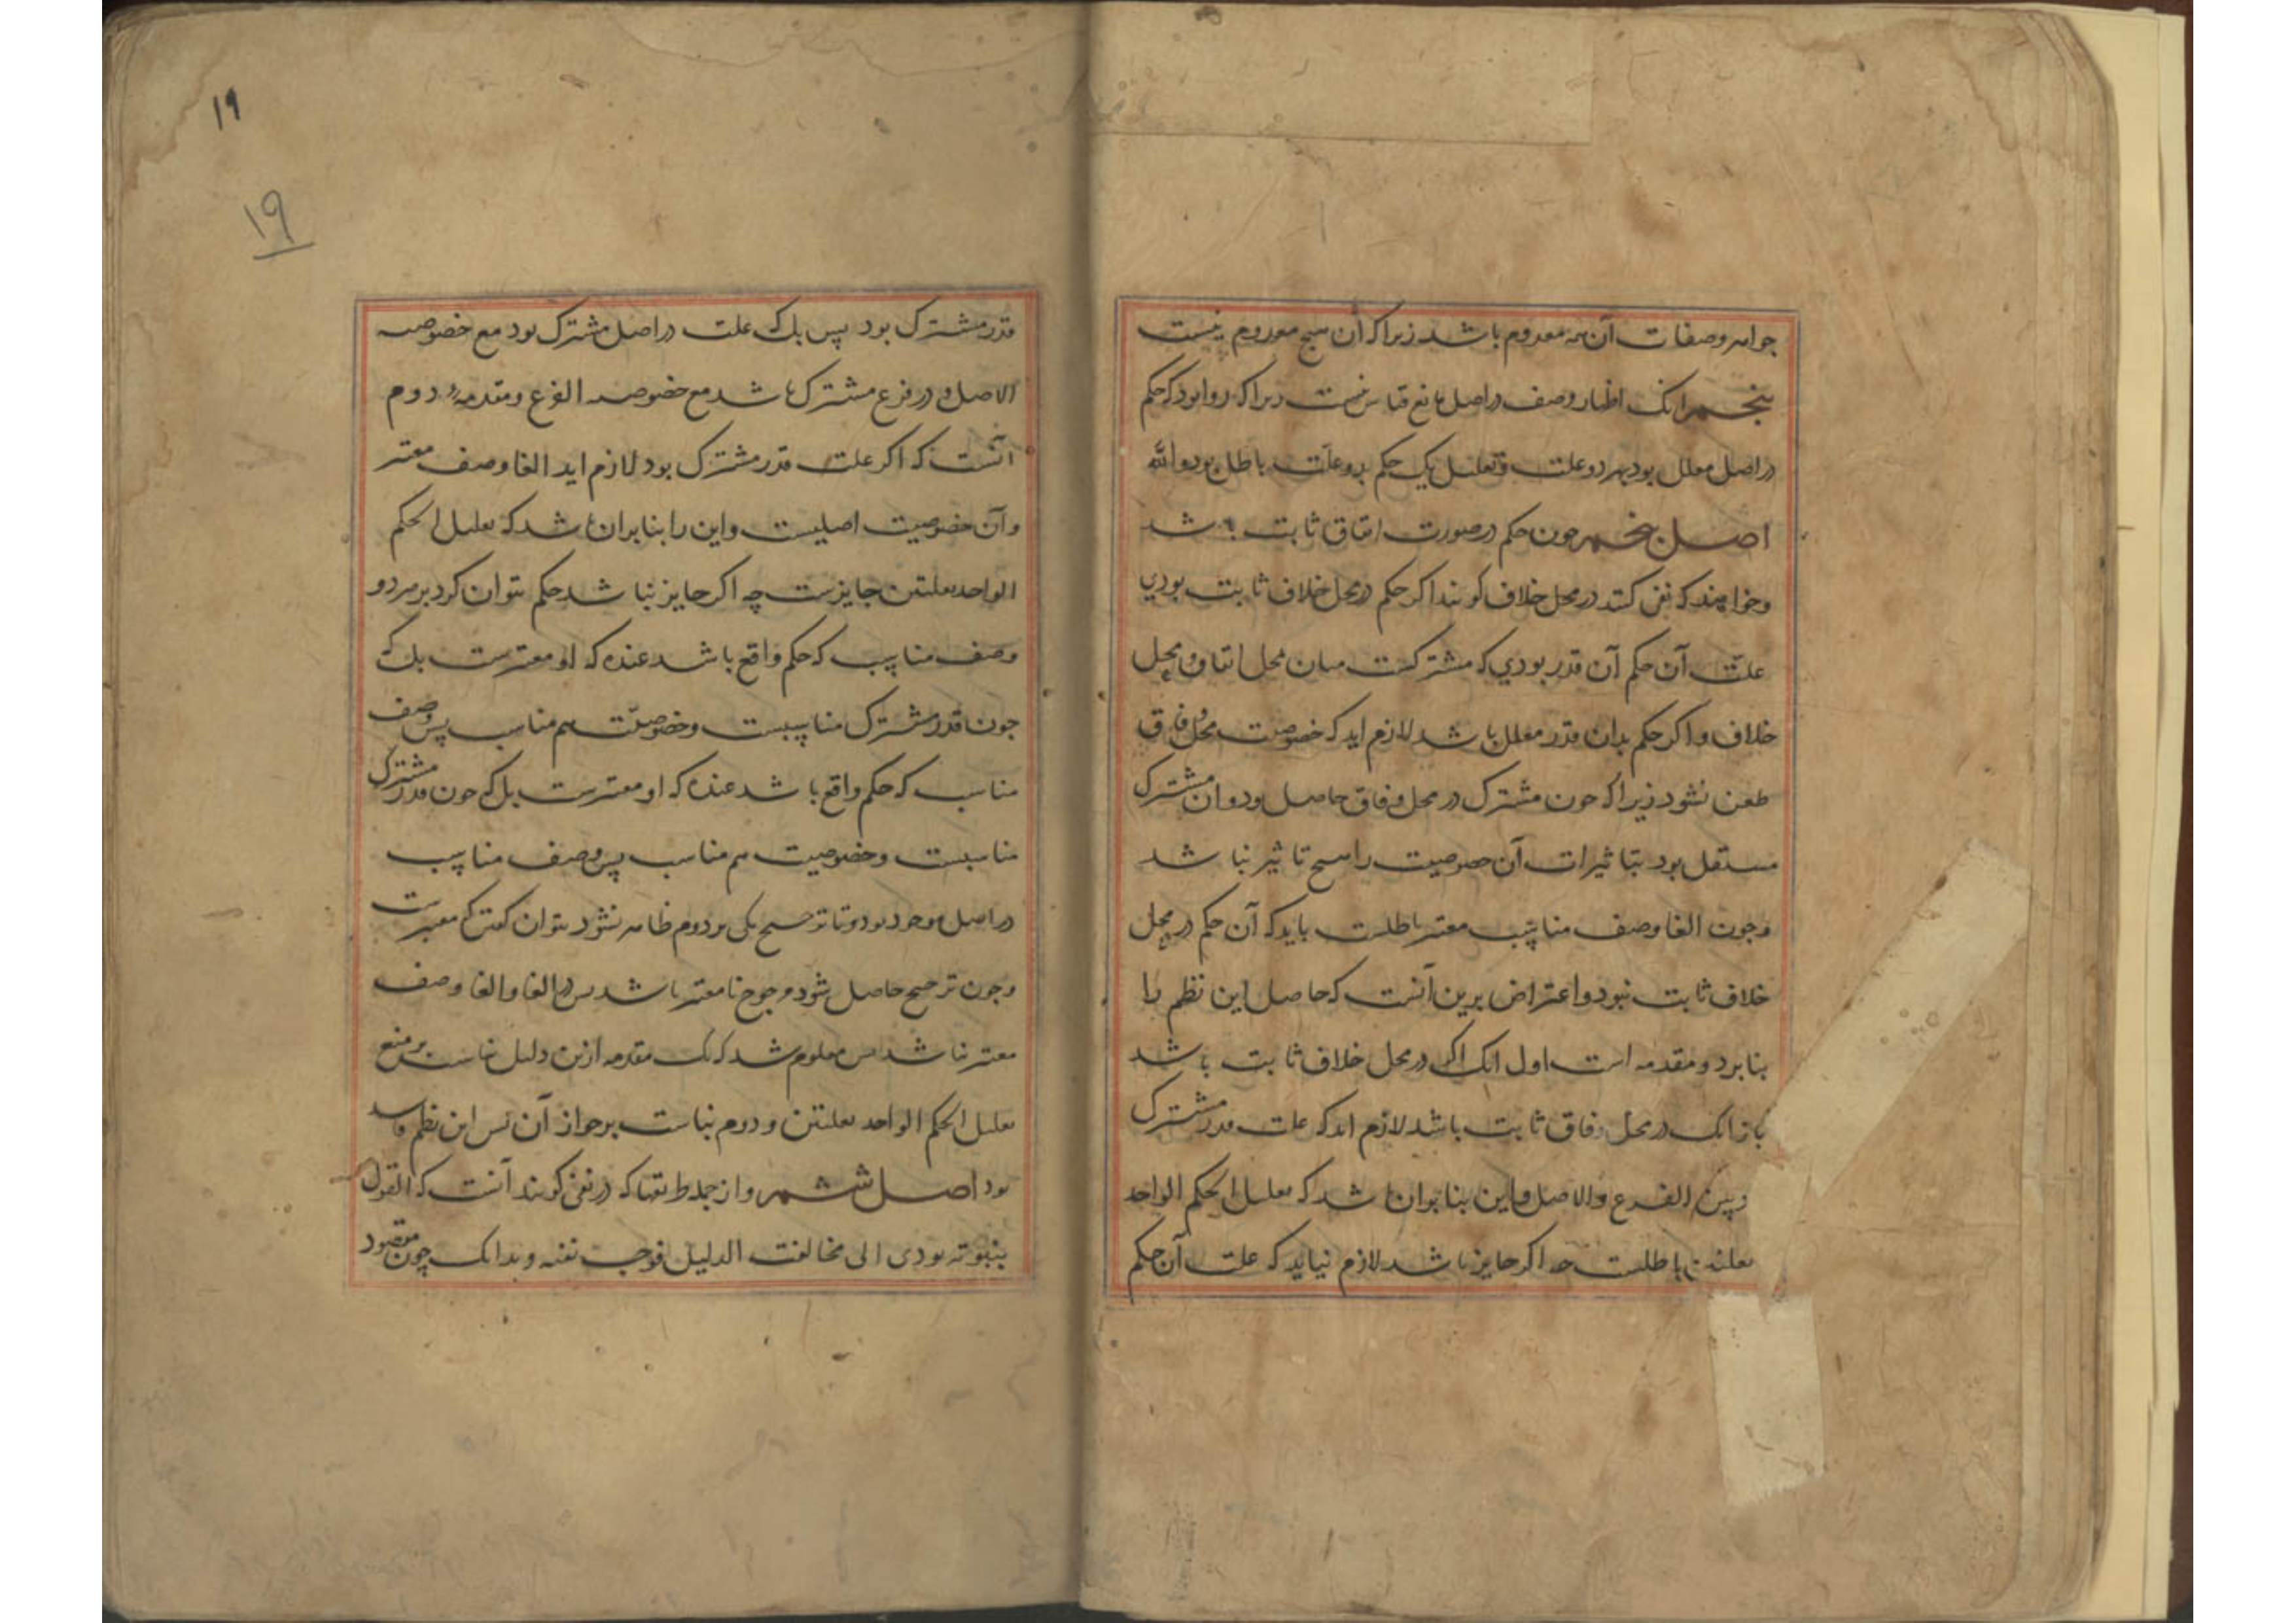 جواهر و صفات آن همه معدوم باشد زیرا که آن هیچ معدوم نیست
پنجم انک اظهار وصف در اصل مانع قیاس نیست زیرا که روا بود که حکم
در اصل معلل بود بهر دو علت و تعلیل یک حکم بدو علت باطل بود والله
اصل پنجم چون حکم در صورت اتفاق ثابت باشد
و خواهند که نفی کنند در محل خلاف کویند اکر حکم در محل خلاف ثابت بودي
علت آن حکم آن قدر بودي که مشترکست میان محل اتفاق و محل
خلاف و اکر حکم بدان قدر معلل باشد لازم اید که خصوصیت محل وفاق
طعن نشود زیرا که چون مشترک در محل وفاق حاصل بود و ان مشترک
مستقل بود بتاثیرات آن خصوصیت را هیچ تاثیر نباشد
و چون الغا وصف مناسب معتبر باطلست باید که آن حکم در محل
خلاف ثابت نبود و اعتراض برین آنست که حاصل این نظم را
بنا بر دو مقدمه است اول انک اکر در محل خلاف ثابت باشد
با زانک در محل وفاق ثابت باشد لازم اید که علت قدر مشترک
وبین الفرع والاصل و این بنا بران باشد که تعلیل الحکم الواحد
بعلتین باطلست چه اکر جایز باشد لازم نیاید که علت آن حکم
١٩
١٩
قدر مشترک بود پس بلک علت در اصل مشترک بود مع خصوصیه
الاصل و در فرع مشترک باشد مع خصوصیه الفرع و مقدمهٔ دوم
آنست که اکر علت قدر مشترک بود لازم اید الغا وصف معتبر
و آن خصوصیت اصلیست و این را بنا بران باشد که تعلیل الحکم
الواحد بعلتین جایزست چه اکر جایز نباشد حکم نتوان کرد بر هر دو
وصف مناسب که حکم واقع باشد عنده که او معتبرست بلک
چون قدر مشترک مناسبست و خصوصیت هم مناسب پس وصف
مناسب که حکم واقع باشد عنده که او معتبرست بلک چون قدر مشترک
مناسبست و خصوصیت هم مناسب پس وصف مناسب
در اصل موجود بود و تا ترجیح یکی بر دوم ظاهر نشود نتوان کفتن که معتبرست
و چون ترجیح حاصل شود مرجوح نا معتبر باشد پس در الغا و الغا وصف
معتبر نباشد پس معلوم شد که یک مقدمه ازین دلیل بناست بر منع
تعلیل الحکم الواحد بعلتین و دوم بناست بر جواز آن پس این نظم فاسد
بود اصل ششم و از جمله طریقها که در نفی کویند آنست که القول
بثبوته یودی الی مخالفت الدلیل فوجب نفیه و بدانک چون مقصود